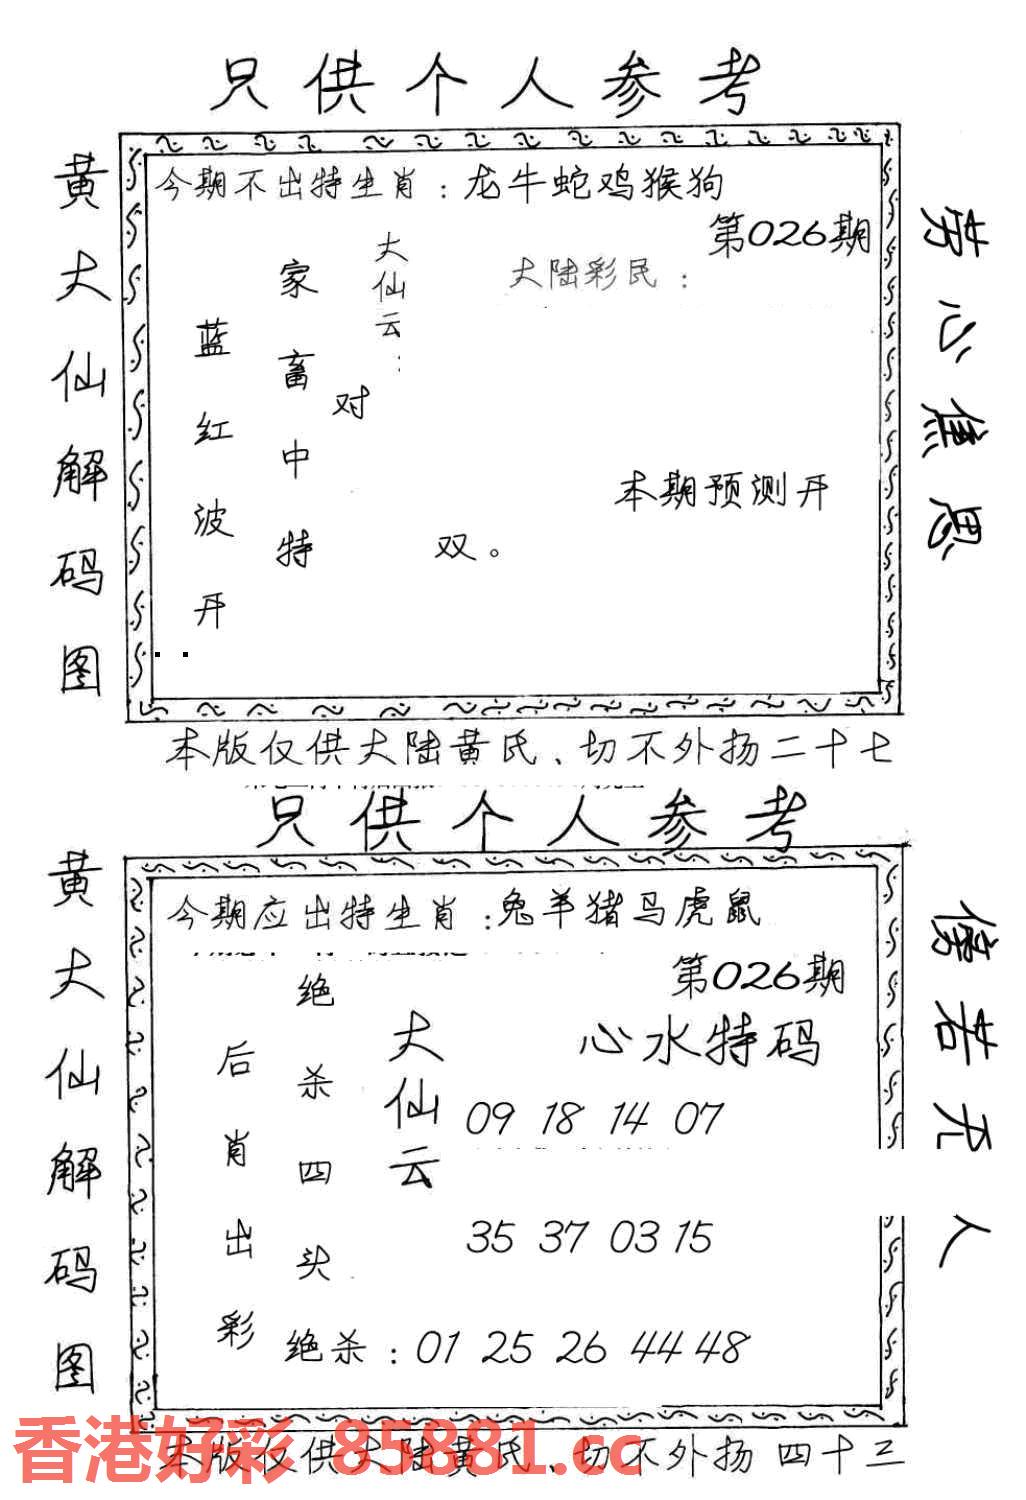 只供个人参考
黄大仙解码图
今期不出特生肖：龙牛蛇鸡猴狗
第026期
大仙云：
大陆彩民：
家畜中特
蓝红波开
对
双。
本期预测开
劳心焦思
本版仅供大陆黄氏、切不外扬二十七
只供个人参考
黄大仙解码图
今期应出特生肖：兔羊猪马虎鼠
第026期
绝杀四头
后肖出彩
大仙云
心水特码
09 18 14 07
35 37 03 15
绝杀：01 25 26 44 48
傍若无人
本版仅供大陆黄氏、切不外扬 四十三
香港好彩 85881.cc